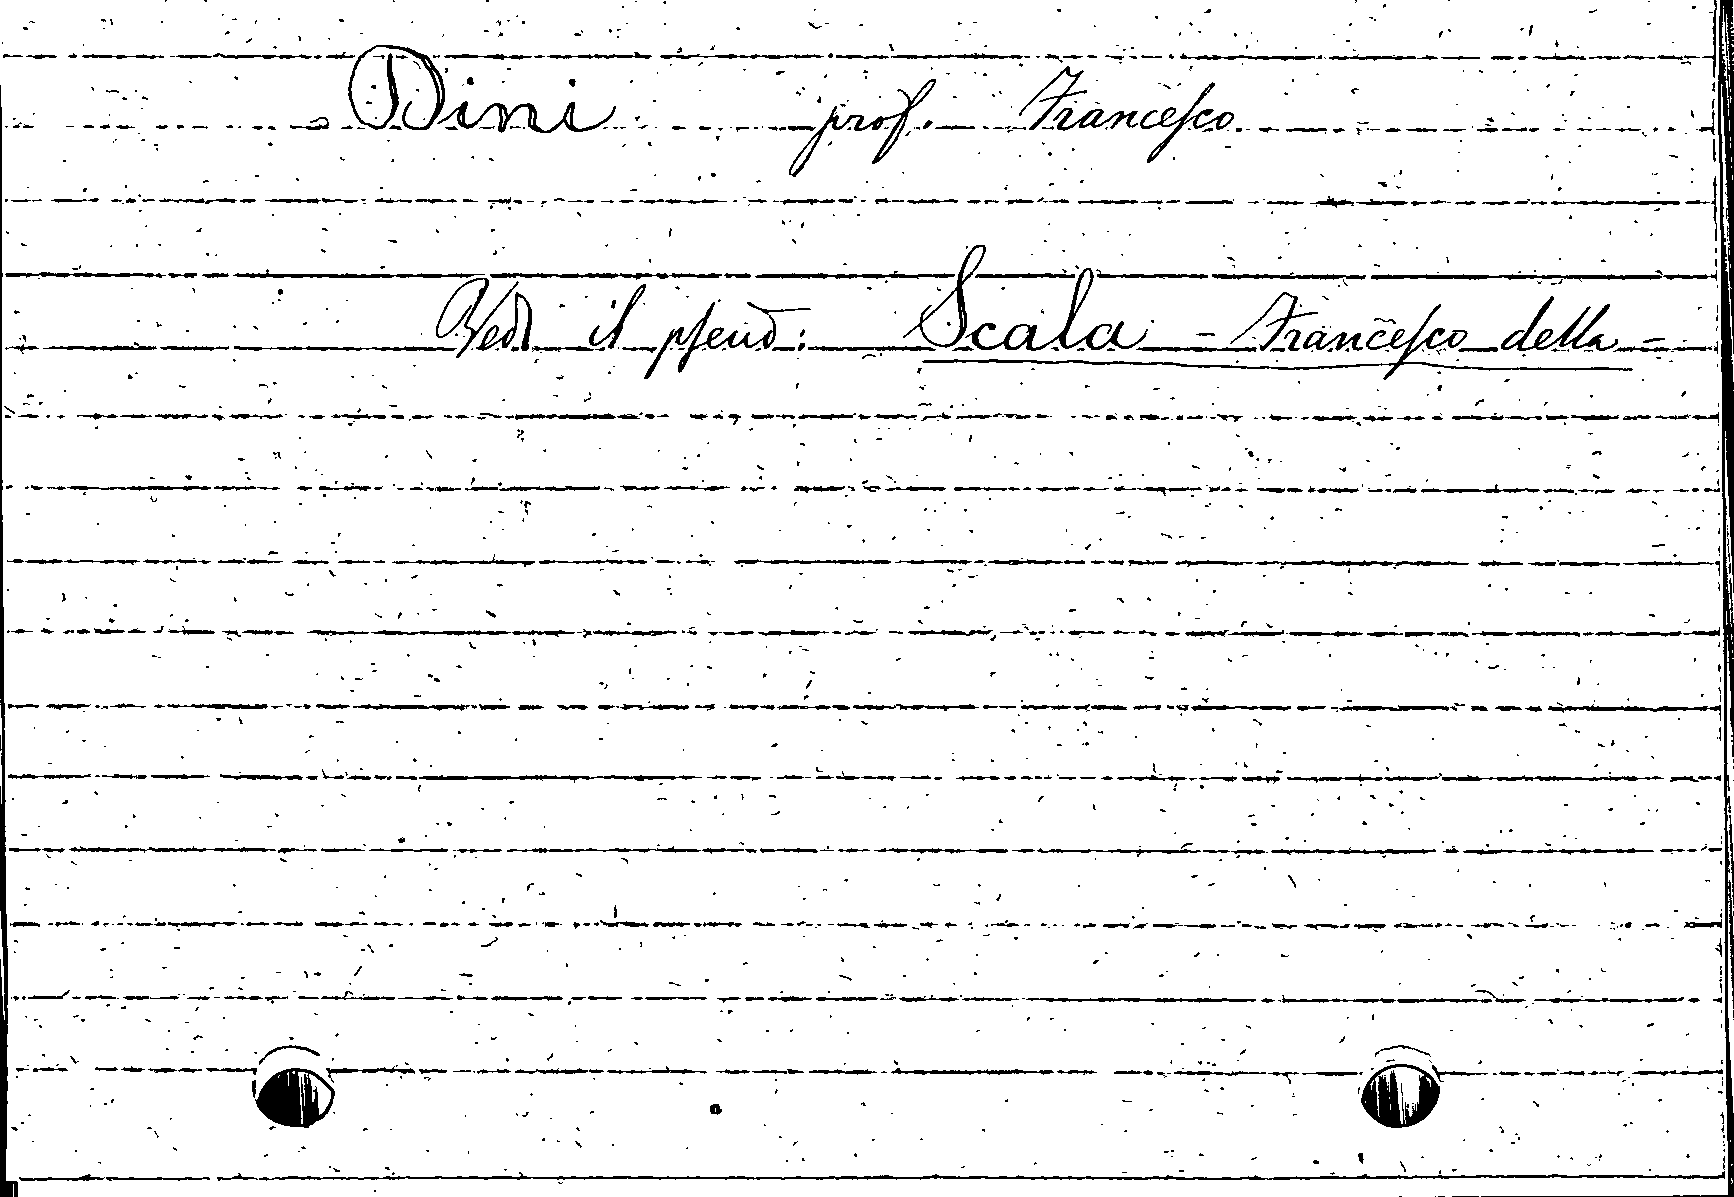 Dini prof. Francesco
Vedi il pseud: Scala - Francesco della -